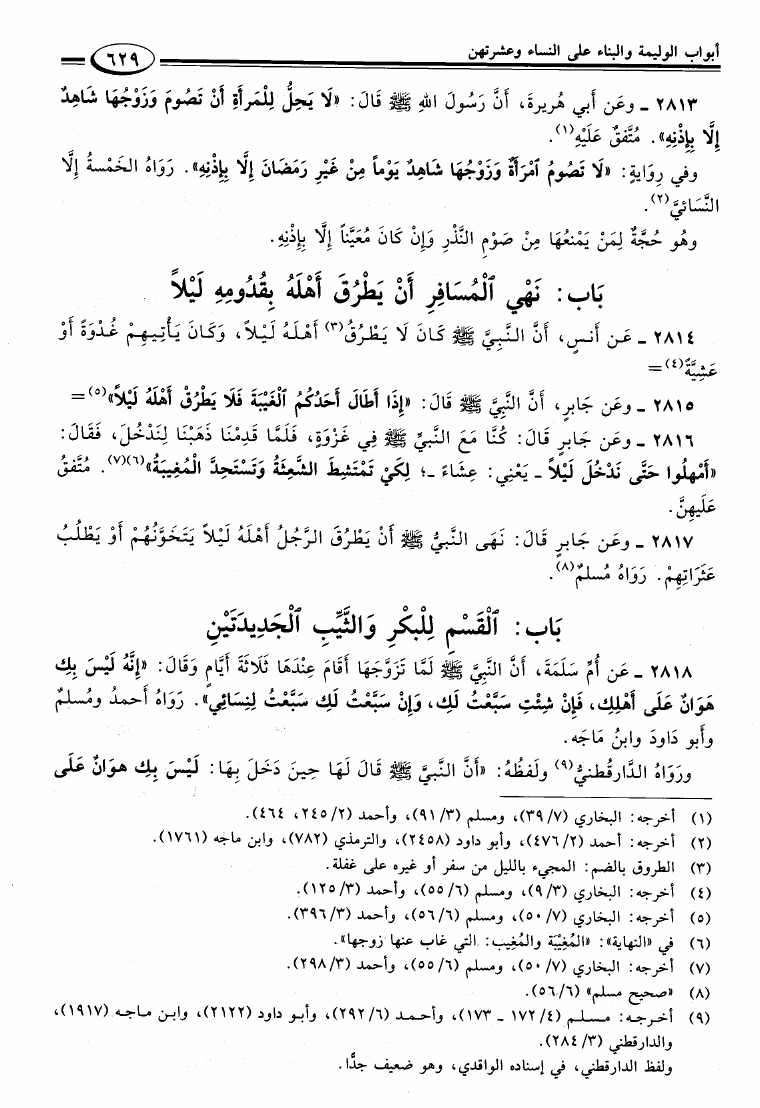 أبواب الوليمة والبناء على النساء وعشرتهن
٦٢٩
٢٨١٣ ـ وعَن أبي هُريرةَ، أنَّ رَسُولَ اللهِ ﷺ قَالَ: «لَا يَحِلُّ لِلْمَرأَةِ أَنْ تَصُومَ وَزَوْجُهَا شَاهِدٌ
إِلَّا بِإِذْنِهِ». مُتَّفقٌ عَلَيْهِ(١).
وفي رِوَايَةٍ: «لَا تَصُومُ ٱمْرَأَةٌ وَزَوْجُهَا شَاهِدٌ يَوْماً مِنْ غَيْرِ رَمَضَانَ إِلَّا بِإِذْنِهِ». رَوَاهُ الخَمْسةُ إِلَّا
النَّسَائيَّ(٢).
وهُو حُجَّةٌ لِمَنْ يَمْنَعُهَا مِنْ صَوْمِ النَّذْرِ وَإِنْ كَانَ مُعَيَّناً إِلَّا بِإِذْنِهِ.
بَاب: نَهْيِ ٱلْمُسَافِرِ أَنْ يَطْرُقَ أَهْلَهُ بِقُدُومِهِ لَيْلاً
٢٨١٤ ـ عَن أَنسٍ، أَنَّ النَّبِيَّ ﷺ كَانَ لَا يَطْرُقُ(٣) أَهْلَهُ لَيْلاً، وَكَانَ يَأْتِيهِمْ غُدْوَةً أَوْ
عَشِيَّةً(٤)=
٢٨١٥ ـ وعَن جَابرٍ، أَنَّ النَّبِيَّ ﷺ قَالَ: «إِذَا أَطَالَ أَحَدُكُمُ ٱلْغَيْبَةَ فَلَا يَطْرُقْ أَهْلَهُ لَيْلاً»(٥)=
٢٨١٦ ـ وعَن جَابرٍ قَالَ: كُنَّا مَعَ النَّبيِّ ﷺ فِي غَزْوَةٍ، فَلَمَّا قَدِمْنَا ذَهَبْنَا لِنَدْخُلَ، فَقَالَ:
«أَمْهِلُوا حَتَّى نَدْخُلَ لَيْلاً ـ يَعْنِي: عِشَاءً ـ؛ لِكَيْ تَمْتَشِطَ الشَّعِثَةُ وَتَسْتَحِدَّ الْمُغِيبَةُ»(٦)(٧). مُتَّفقٌ
عَلَيهِنَّ.
٢٨١٧ ـ وعَن جَابرٍ قَالَ: نَهَى النَّبيُّ ﷺ أَنْ يَطْرُقَ الرَّجُلُ أَهْلَهُ لَيْلاً يَتَخَوَّنُهُمْ أَوْ يَطْلُبُ
عَثَرَاتِهِمْ. رَوَاهُ مُسلمٌ(٨).
بَاب: ٱلْقَسْمِ لِلْبِكْرِ وَالثَّيِّبِ ٱلْجَدِيدَتَيْنِ
٢٨١٨ ـ عَن أُمِّ سَلَمَةَ، أَنَّ النَّبِيَّ ﷺ لَمَّا تَزَوَّجَهَا أَقَامَ عِنْدَهَا ثَلَاثَةَ أَيَّامٍ وَقَالَ: «إِنَّهُ لَيْسَ بِكِ
هَوَانٌ عَلَى أَهْلِكِ، فَإِنْ شِئْتِ سَبَّعْتُ لَكِ، وَإِنْ سَبَّعْتُ لَكِ سَبَّعْتُ لِنِسَائِي». رَوَاهُ أَحمدُ ومُسلمٌ
وأبو دَاودَ وابنُ مَاجَه.
ورَوَاهُ الدَّارقطنيُّ(٩) ولَفظُهُ: «أَنَّ النَّبيَّ ﷺ قَالَ لَهَا حِينَ دَخَلَ بِهَا: لَيْسَ بِكِ هوَانٌ عَلَى
(١) أخرجه: البخاري (٣٩/٧)، ومسلم (٩١/٣)، وأحمد (٢٤٥/٢، ٤٦٤).
(٢) أخرجه: أحمد (٤٧٦/٢)، وأبو داود (٢٤٥٨)، والترمذي (٧٨٢)، وابن ماجه (١٧٦١).
(٣) الطروق بالضم: المجيء بالليل من سفر أو غيره على غفلة.
(٤) أخرجه: البخاري (٩/٣)، ومسلم (٥٥/٦)، وأحمد (١٢٥/٣).
(٥) أخرجه: البخاري (٥٠/٧)، ومسلم (٥٦/٦)، وأحمد (٣٩٦/٣).
(٦) في «النهاية»: «المُغِيْبَة والمُغِيب: التي غاب عنها زوجها».
(٧) أخرجه: البخاري (٥٠/٧)، ومسلم (٥٥/٦)، وأحمد (٢٩٨/٣).
(٨) «صحيح مسلم» (٥٦/٦).
(٩) أخرجه: مسلم (١٧٢/٤ ـ ١٧٣)، وأحمد (٢٩٢/٦)، وأبو داود (٢١٢٢)، وابن ماجه (١٩١٧)،
والدارقطني (٢٨٤/٣).
ولفظ الدارقطني، في إسناده الواقدي، وهو ضعيف جدًّا.